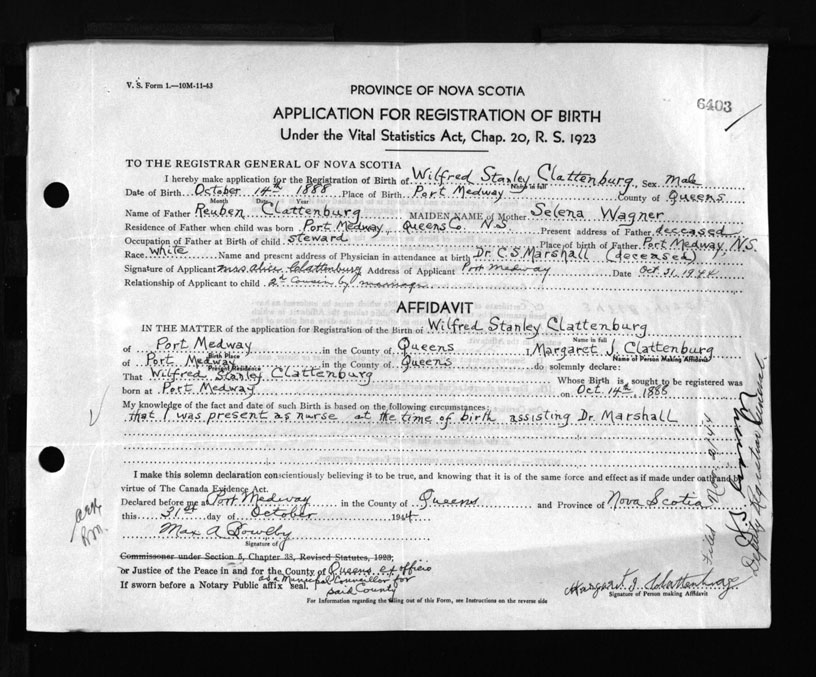 V. S. Form 1.—10M-11-43
PROVINCE OF NOVA SCOTIA
6403
APPLICATION FOR REGISTRATION OF BIRTH
Under the Vital Statistics Act, Chap. 20, R. S. 1923
TO THE REGISTRAR GENERAL OF NOVA SCOTIA
I hereby make application for the Registration of Birth of Wilfred Stanley Clattenburg, Sex Male
Name in full
Date of Birth October 14th 1888 Place of Birth Port Medway County of Queens
Month Day Year
Name of Father Reuben Clattenburg MAIDEN NAME of Mother Selena Wagner
Residence of Father when child was born Port Medway, Queens Co. N.S. Present address of Father deceased
Occupation of Father at Birth of child steward Place of birth of Father Port Medway, N.S.
Race White Name and present address of Physician in attendance at birth Dr. C. S. Marshall (deceased)
Signature of Applicant Mrs. Clattenburg Address of Applicant Port Medway Date Oct. 31, 1944
Relationship of Applicant to child 2nd Cousin by marriage
AFFIDAVIT
IN THE MATTER of the application for Registration of the Birth of Wilfred Stanley Clattenburg
Name in full
of Port Medway in the County of Queens I, Margaret J. Clattenburg
Birth Place Name of Person Making Affidavit
of Port Medway in the County of Queens do solemnly declare:
Present Residence
That Wilfred Stanley Clattenburg Whose Birth is sought to be registered was
born at Port Medway on Oct 14th 1888
My knowledge of the fact and date of such Birth is based on the following circumstances:
that I was present as nurse at the time of birth assisting Dr. Marshall
I make this solemn declaration conscientiously believing it to be true, and knowing that it is of the same force and effect as if made under oath and by
virtue of The Canada Evidence Act.
Declared before me at Port Medway in the County of Queens and Province of Nova Scotia
this 31st day of October 1944
Max A
Signature of
Commissioner under Section 5, Chapter 38, Revised Statutes, 1923,
or Justice of the Peace in and for the County of Queens ex officio
as a Municipal Councillor for
If sworn before a Notary Public affix seal. said County
Margaret J. Clattenburg
Signature of Person making Affidavit
For Information regarding the filling out of this Form, see Instructions on the reverse side
Filed Nov 2/44
Deputy Registrar General